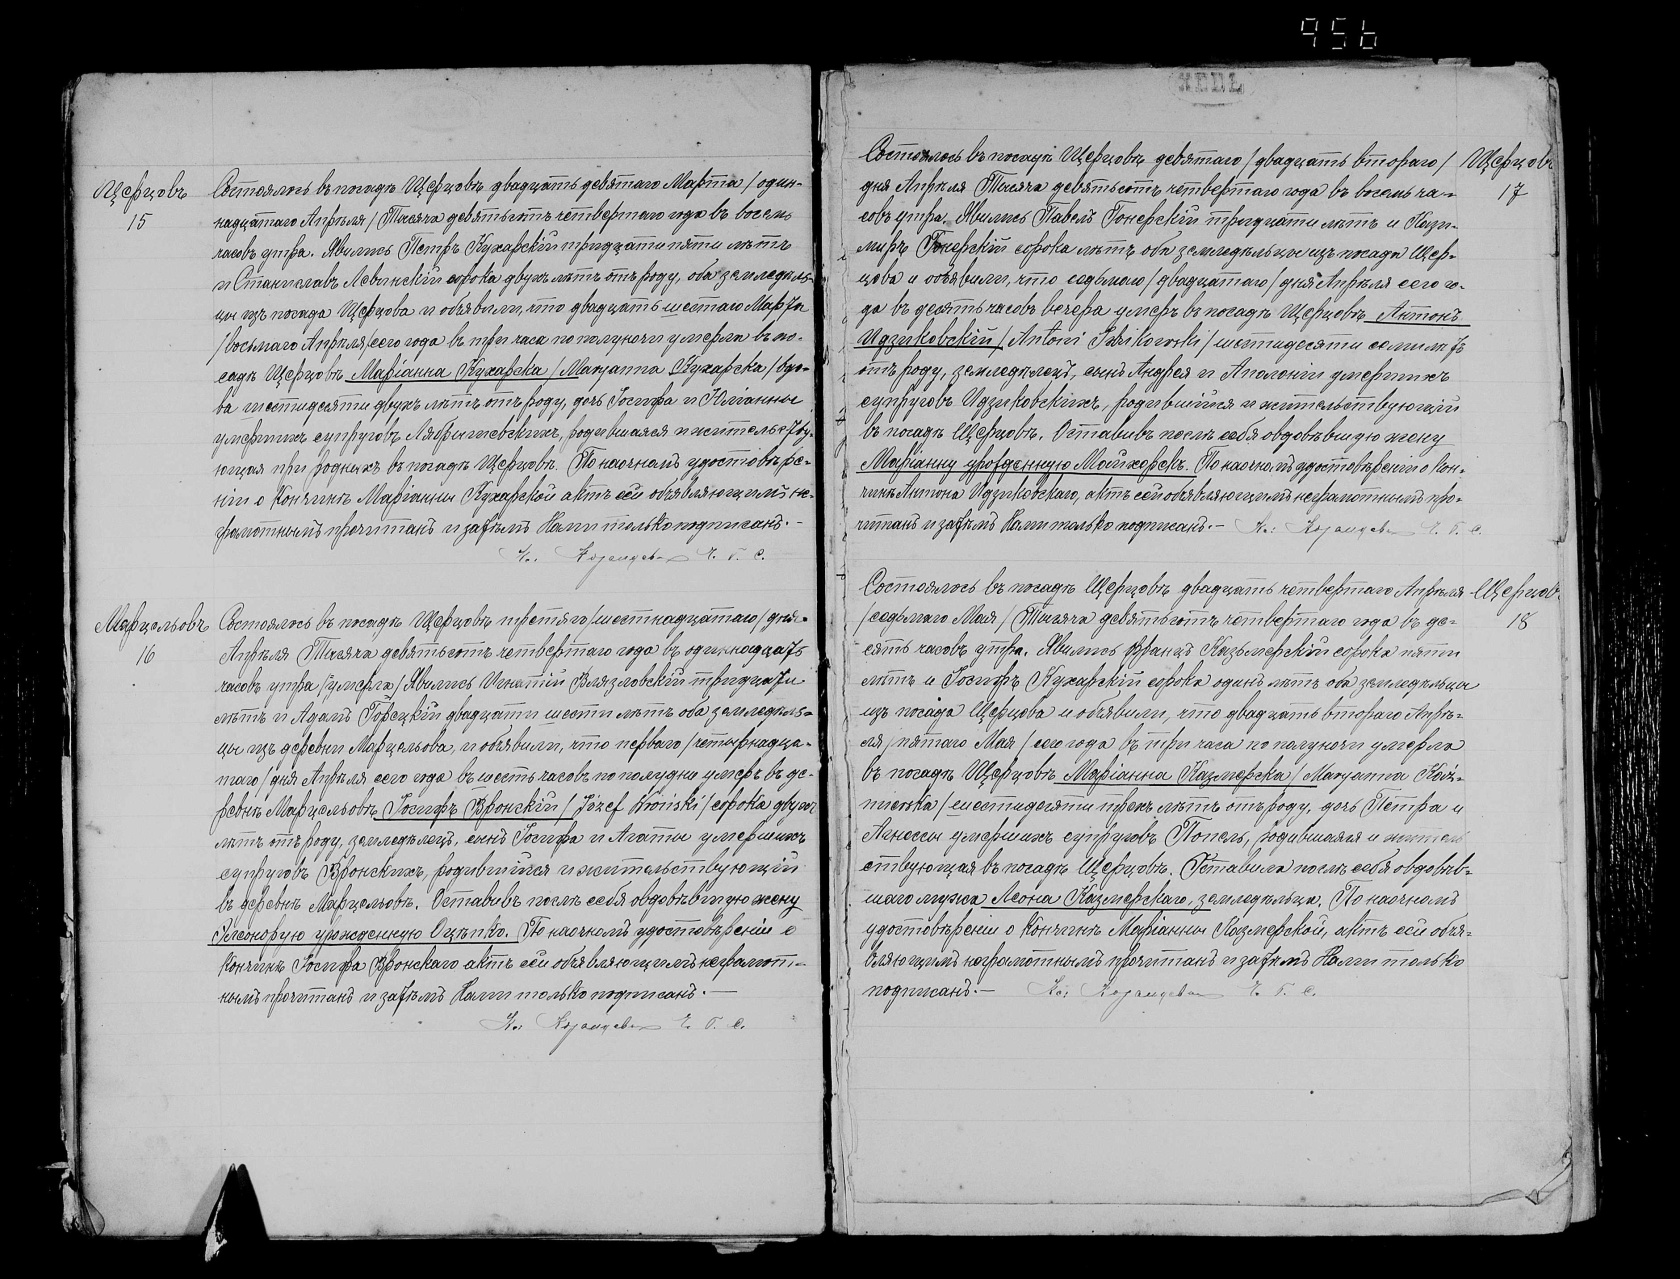 956
Щерцовъ
15
Состоялось въ посадѣ Щерцовѣ двадцать девятаго Марта /один-
надцатаго Апрѣля/ Тысяча девятьсотъ четвертаго года въ восемь
часовъ утра. Явились Петръ Кухарскій тридцати пяти лѣтъ
и Станиславъ Левинскій сорока двухъ лѣтъ отъ роду, оба земледѣль-
цы изъ посада Щерцова и объявили, что двадцать шестаго Марта
/восьмаго Апрѣля/ сего года въ три часа по полуночи умерла въ по-
садѣ Щерцовѣ Маріанна Кухарска /Maryanna Kuharska/ вдо-
ва шестидесяти двухъ лѣтъ отъ роду, дочь Іосифа и Юліанны
умершихъ супруговъ родившаяся и жительству-
ющая при родныхъ въ посадѣ Щерцовѣ. По наочномъ удостовѣре-
ніи о кончинѣ Маріанны Кухарской актъ сей объявляющимъ не-
грамотнымъ прочитанъ и затѣмъ Нами только подписанъ.-
Кс: Ч. Г. С.
Марцельовъ
16
Состоялось въ посадѣ Щерцовѣ третяго /шестнадцатаго/ дня
Апрѣля Тысяча девятьсотъ четвертаго года въ одиннадцать
часовъ утра /умерла/ Явились Игнатій Влязловскій тридцати
лѣтъ и Адамъ Горецкій двадцати шести лѣтъ оба земледѣль-
цы изъ деревни Марцельова, и объявили, что перваго /четырнадца-
таго/ дня Апрѣля сего года въ шесть часовъ по полудни умеръ въ де-
ревнѣ Марцельовѣ Іосифъ Вронскій /Józef Wroński/ сорока двухъ
лѣтъ отъ роду, земледѣлецъ, сынъ Іосифа и Агаты умершихъ
супруговъ Вронскихъ, родившійся и жительствующій
въ деревнѣ Марцельовѣ. Оставивъ послѣ себя овдовѣвшую жену
Элеонорую урожденную Оцѣпко. По наочномъ удостовѣреніи о
кончинѣ Іосифа Вронскаго актъ сей объявляющимъ неграмот-
нымъ прочитанъ и затѣмъ Нами только подписанъ.-
Кс: Ч. Г. С.
Щерцовъ
17
Состоялось въ посадѣ Щерцовѣ девятаго /двадцать втораго/
дня Апрѣля Тысяча девятьсотъ четвертаго года въ восемь ча-
совъ утра. Явились Павелъ Гонерскій тридцати лѣтъ и Кази-
миръ Гонерскій сорока лѣтъ оба земледѣльцы изъ посада Щер-
цова и объявили, что седьмаго /двадцатаго/ дня Апрѣля сего го-
да въ десять часовъ вечера умеръ въ посадѣ Щерцовѣ Антонъ
Идзиковскій /Antoni Idzikowski/ шестидесяти семи лѣтъ
отъ роду, земледѣлецъ, сынъ Андрея и Аполоніи умершихъ
супруговъ Идзиковскихъ, родившійся и жительствующій
въ посадѣ Щерцовѣ. Оставивъ послѣ себя овдовѣвшую жену
Маріанну урожденную Майхорскъ. По наочномъ удостовѣреніи о кон-
чинѣ Антона Идзиковскаго, актъ сей объявляющимъ неграмотнымъ про-
читанъ и затѣмъ Нами только подписанъ.- Кс: Ч. Г. С.
Щерцовъ
18
Состоялось въ посадѣ Щерцовѣ двадцать четвертаго Апрѣля
/седьмаго Мая/ Тысяча девятьсотъ четвертаго года въ де-
сять часовъ утра. Явились Францъ Казьмерскій сорока пяти
лѣтъ и Іосифъ Кухарскій сорока одинъ лѣтъ оба земледѣльцы
изъ посада Щерцова и объявили, что двадцать втораго Апрѣ-
ля /пятаго Мая/ сего года въ три часа по полуночи умерла
въ посадѣ Щерцовѣ Маріанна Казмерска /Maryanna Kaź-
mierska/ шестидесяти трехъ лѣтъ отъ роду, дочь Петра и
Агнессы умершихъ супруговъ Попель, родившаяся и житель
ствующая въ посадѣ Щерцовѣ. Оставила послѣ себя овдовѣв-
шаго мужа Леона Казмерскаго, земледѣльца. По наочномъ
удостовѣреніи о кончинѣ Маріанны Казмерской, актъ сей объя-
вляющимъ неграмотнымъ прочитанъ и затѣмъ Нами только
подписанъ.- Кс: Ч. Г. С.